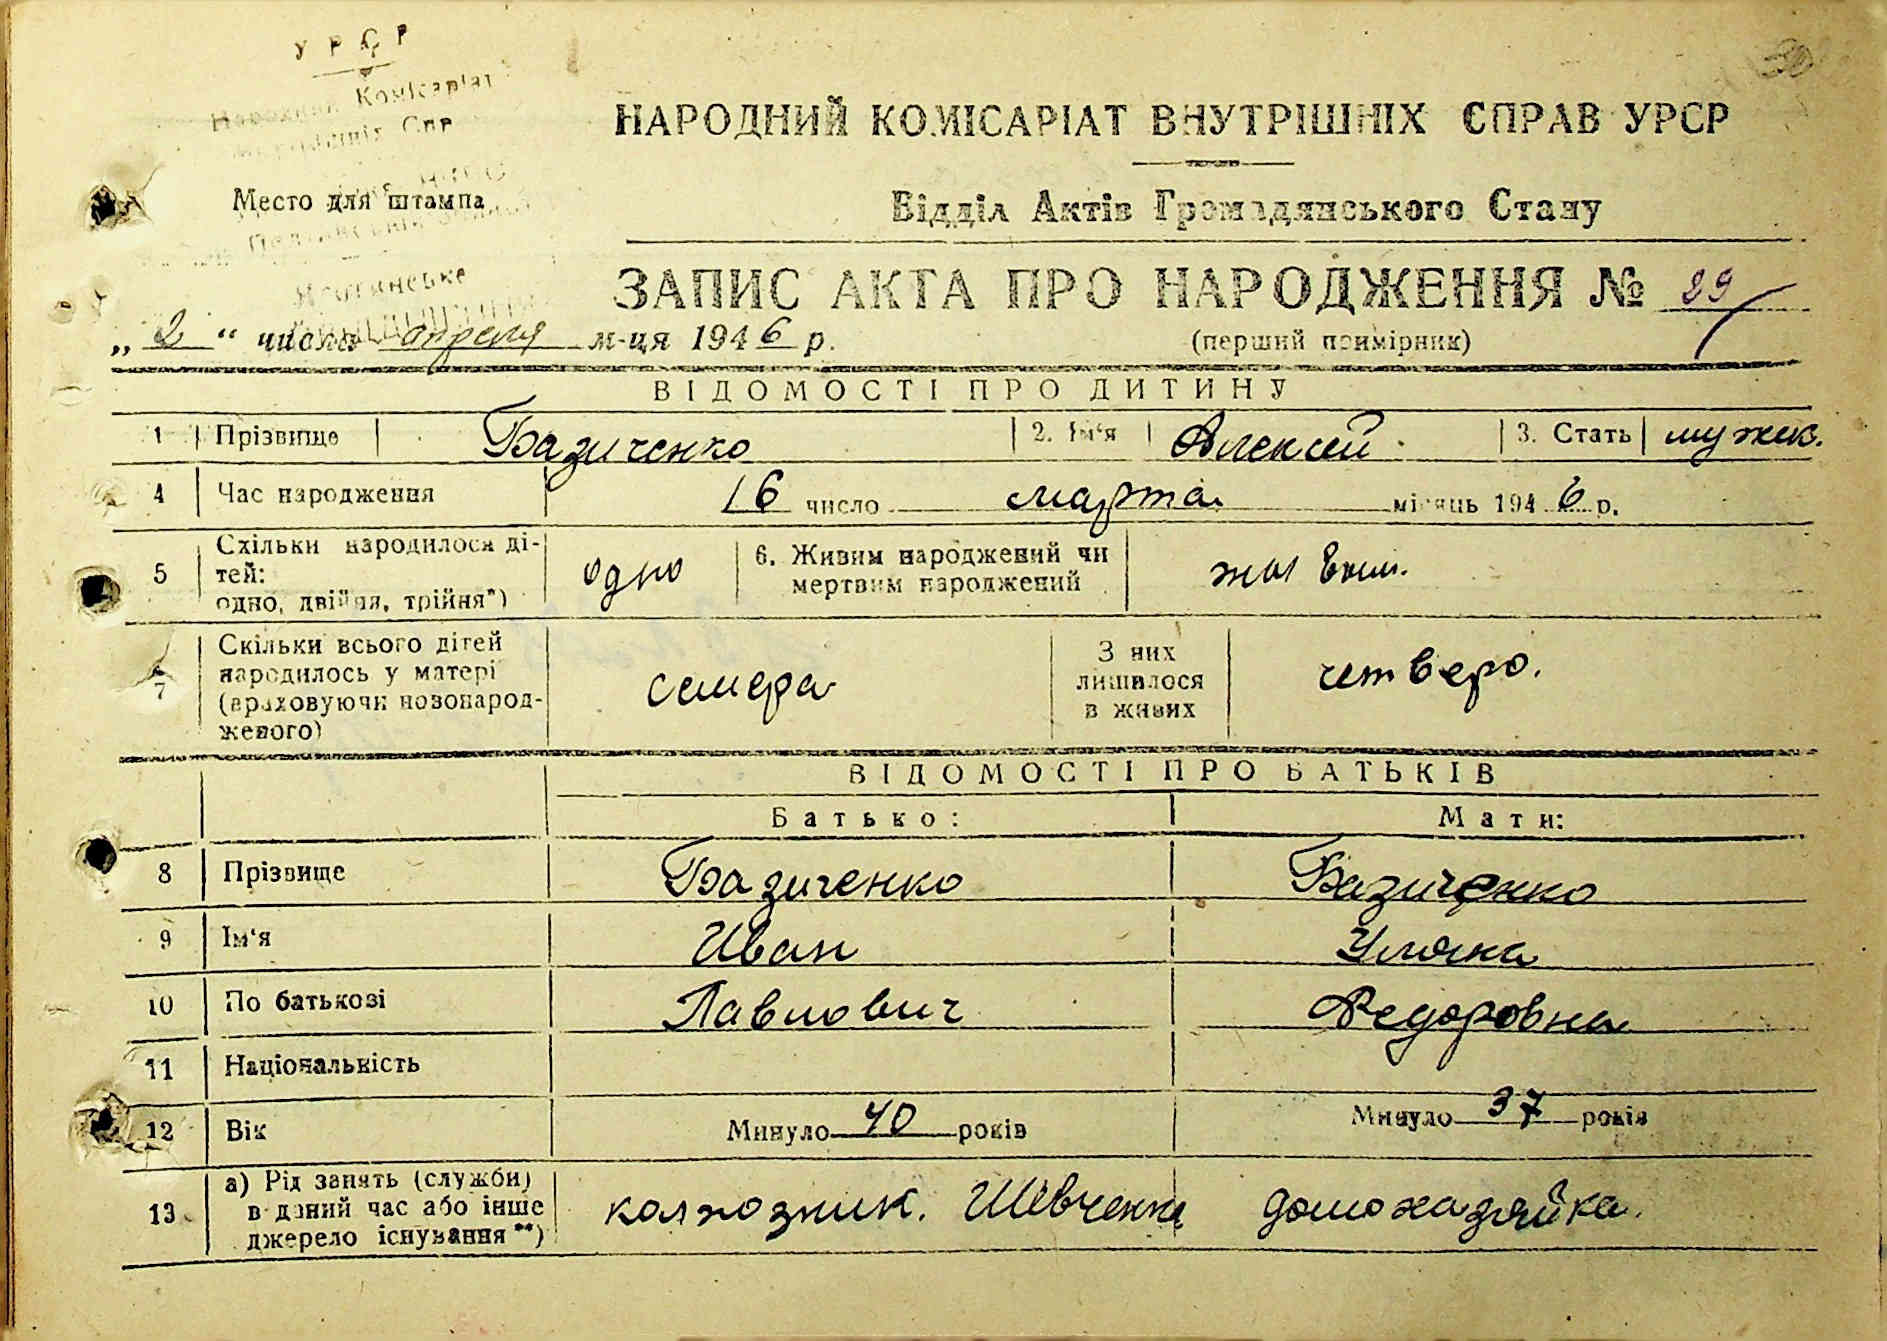 У Р С Р
Народний Комісаріат
НАРОДНИЙ КОМІСАРІАТ ВНУТРІШНІХ СПРАВ УРСР
Место для штампа
Відділ Актів Громадянського Стану
ЗАПИС АКТА ПРО НАРОДЖЕННЯ № 29
„ 2 “ числа апреля м-ця 1946 р.
(перший примірник)
ВІДОМОСТІ ПРО ДИТИНУ
1 Прізвище Базиченко 2. Ім'я Алексей 3. Стать мужск.
4 Час народження 16 число марта місяць 1946 р.
5 Скільки народилося ді-
тей:
одно, двійня, трійня*) одно 6. Живим народжений чи
мертвим народжений живым.
7 Скільки всього дітей
народилось у матері
(враховуючи новонарод-
женого) семера З них
лишилося
в живих четверо.
ВІДОМОСТІ ПРО БАТЬКІВ
Батько: Мати:
8 Прізвище Базиченко Базиченко
9 Ім'я Иван Уляна
10 По батькові Павлович Федоровна
11 Національність
12 Вік Минуло 40 років Минуло 37 років
13 а) Рід занять (служби)
в даний час або інше
джерело існування **) колхозник. Шевченка домохазяйка.